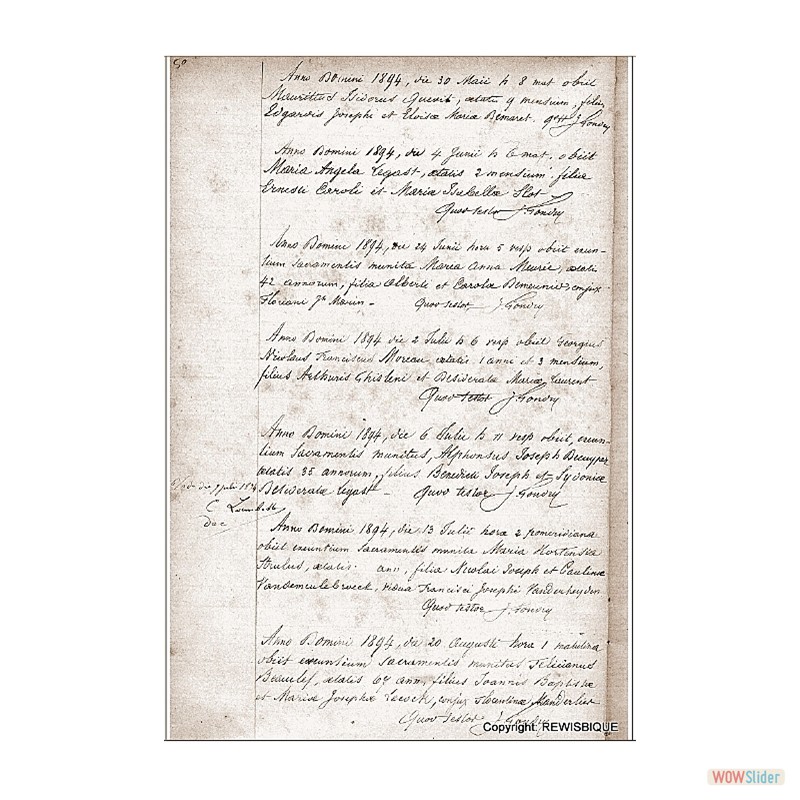 50
Anno Domini 1894, die 30 Maii h 8 mat obiit
Mauritius Isidorus Quevit, ætatis 9 mensium, filius
Edgardis Josephi et Eloisæ Mariæ Demaret. J. Gondry
Anno Domini 1894, die 4 Junii h 6 mat. obiit
Maria Angela Legast, ætatis 2 mensium filia
Ernesti Caroli et Mariæ Isabellæ Flot
Quod testor J. Gondry
Anno Domini 1894, die 24 Junii hora 5 vesp obiit exeun-
tium sacramentis munita Maria Anna Meurée, ætatis
42 annorum, filia Alberti et Carolæ Demeunier, conjux
Floriani Jh Marin - Quod testor J. Gondry
Anno Domini 1894 die 2 Julii h 6 vesp obiit Georgius
Nicolaus Franciscus Moreau ætatis 1 anni et 3 mensium,
filius Arthuris Ghisleni et Desideratæ Mariæ Laurent
Quod testor J. Gondry
Anno Domini 1894, die 6 Julii h 11 vesp obiit, exeun-
tium Sacramentis munitus, Alphonsus Joseph Decuyper
ætatis 35 annorum, filius Benedicti Joseph et Sydoniæ
Desideratæ Legast - Quod testor J. Gondry
die 7 julii 1894
C
dec
Anno Domini 1894, die 13 Julii hora 2 pomeridiana
obiit exeuntium sacramentis munita Maria Hortensia
Strulus, ætatis ann, filia Nicolai Joseph et Paulinæ
Vandemeulebroeck, vidua Francisci Josephi Vanderheyden
Quod testor J. Gondry
Anno Domini 1894, die 20 Augusti hora 1 matutina
obiit exeuntium sacramentis munitus Felicianus
ætatis 67 ann, filius Joannis Baptistæ
et Mariæ Josephæ Lecock, conjux Florentinæ Vanderlier
Quod testor J. Gondry
Copyright: REWISBIQUE
WOWSlider